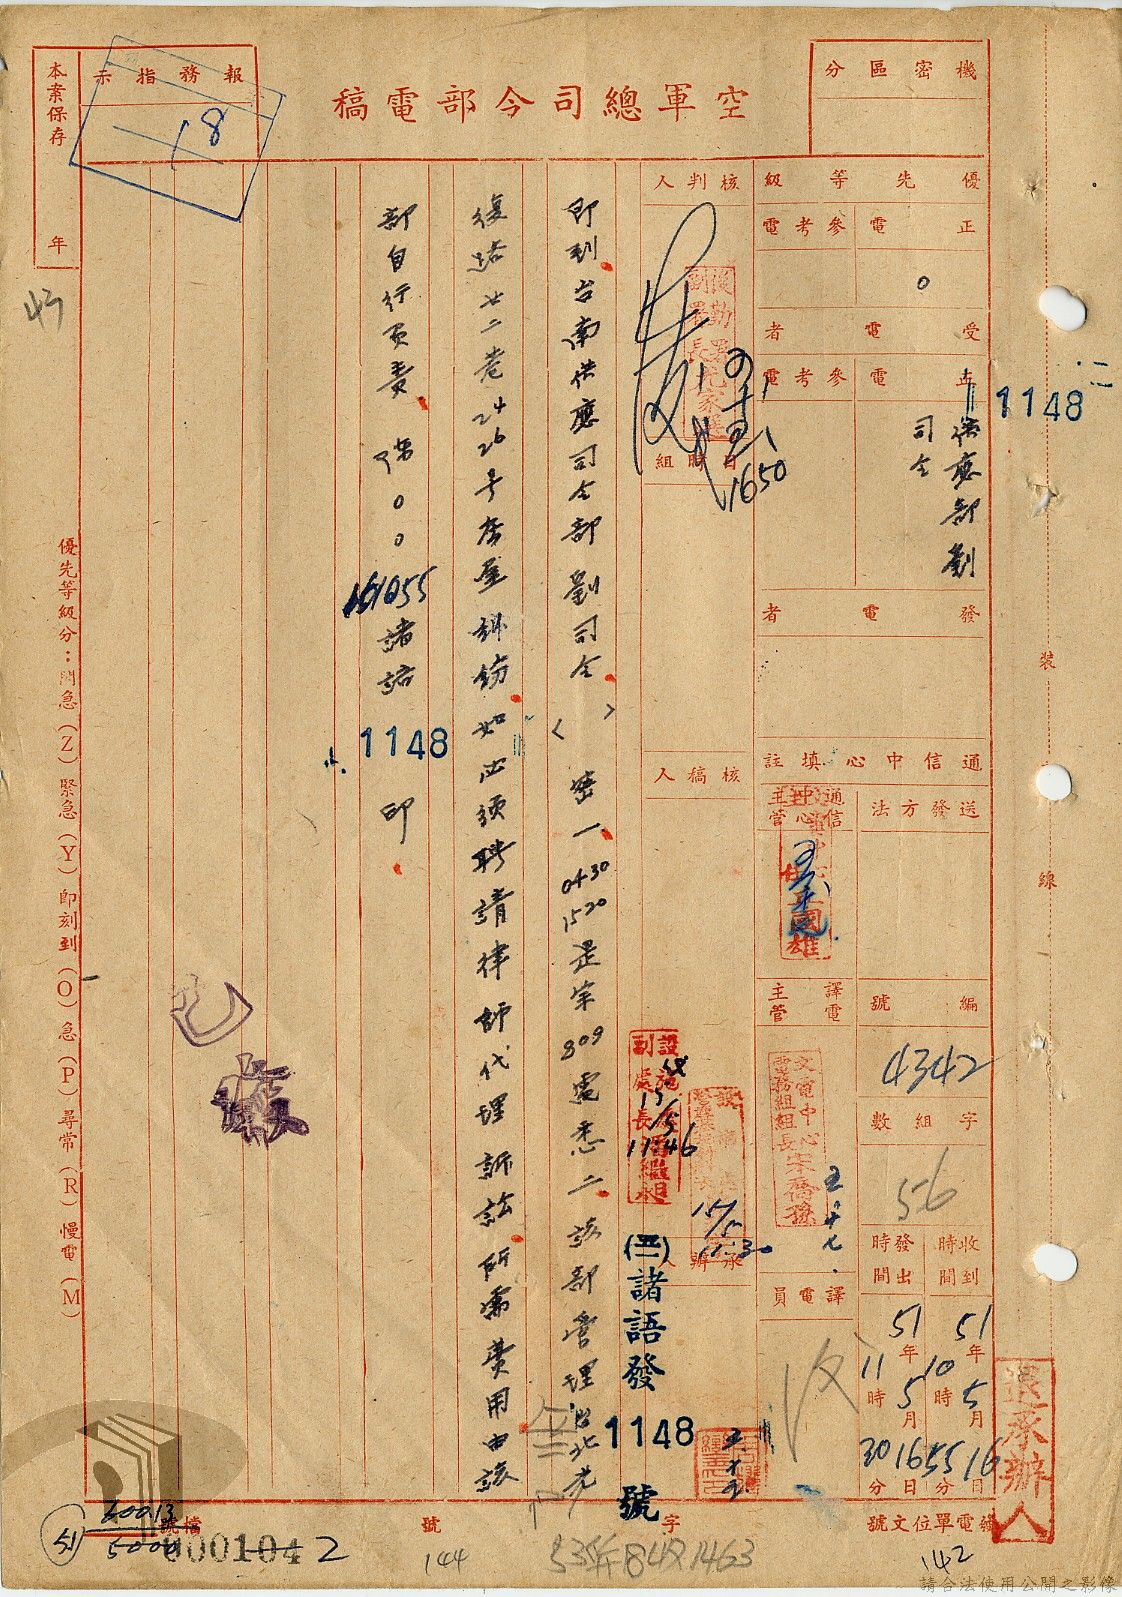 空軍總司令部電稿
機密區分
報務指示
78
本案保存
年
優先等級
正電
參考電
0
受電者
正電
參考電
供應部劉
司令
1148
發電者
核判人
1650
日時組
核稿人
通信中心填註
送發方法
通信中心主管
編號
4342
譯電主管
字組數
56
收到時間
51年5月16日
10時55分
發出時間
51年5月16日
11時30分
譯電員
承辦人
15/5
1146
15/5
11:30
即到台南供應司令部劉司令
密一0430
1520是宗809電悉二該部管理台北光
復路廿二巷24
26号房屋糾紛如必須聘請律師代理訴訟所需費用由該
部自行負責
1148
印
諸語發1148號
裝
線
退承辦人
優先等級分：閃急(Z)緊急(Y)即刻到(O)急(P)尋常(R)慢電(M)
發電單位文號
142
字
號
144
檔號
0001042
51
請合法使用公開之影像